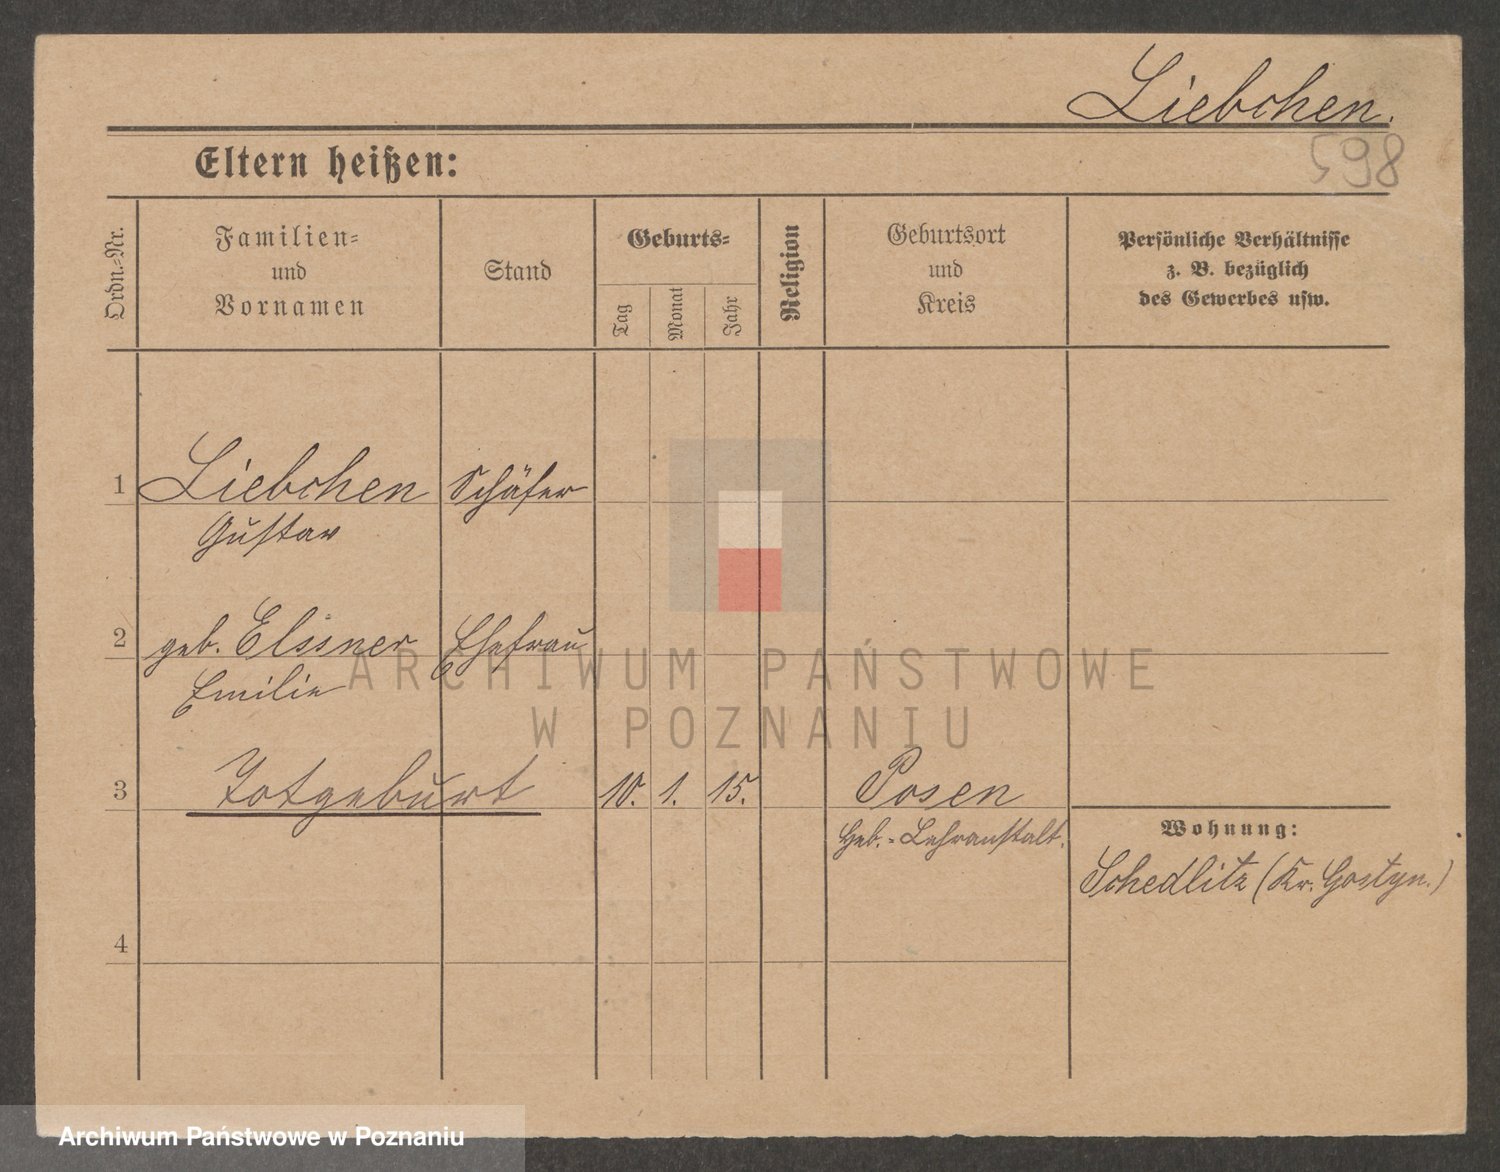 Liebchen.
598
Eltern heißen:
Ordn.-Nr.
Familien-
und
Vornamen
Stand
Geburts-
Tag
Monat
Jahr
Religion
Geburtsort
und
Kreis
Persönliche Verhältnisse
z. B. bezüglich
des Gewerbes usw.
1 Liebchen Schäfer
Gustav
2 geb. Elsner Ehefrau
Emilie
ARCHIWUM PAŃSTWOWE
W POZNANIU
3 Totgeburt 10. 1. 15. Posen
Geb.-Lehranstalt.
Wohnung:
Schedlitz (Kr. Gostyn.)
4
Archiwum Państwowe w Poznaniu